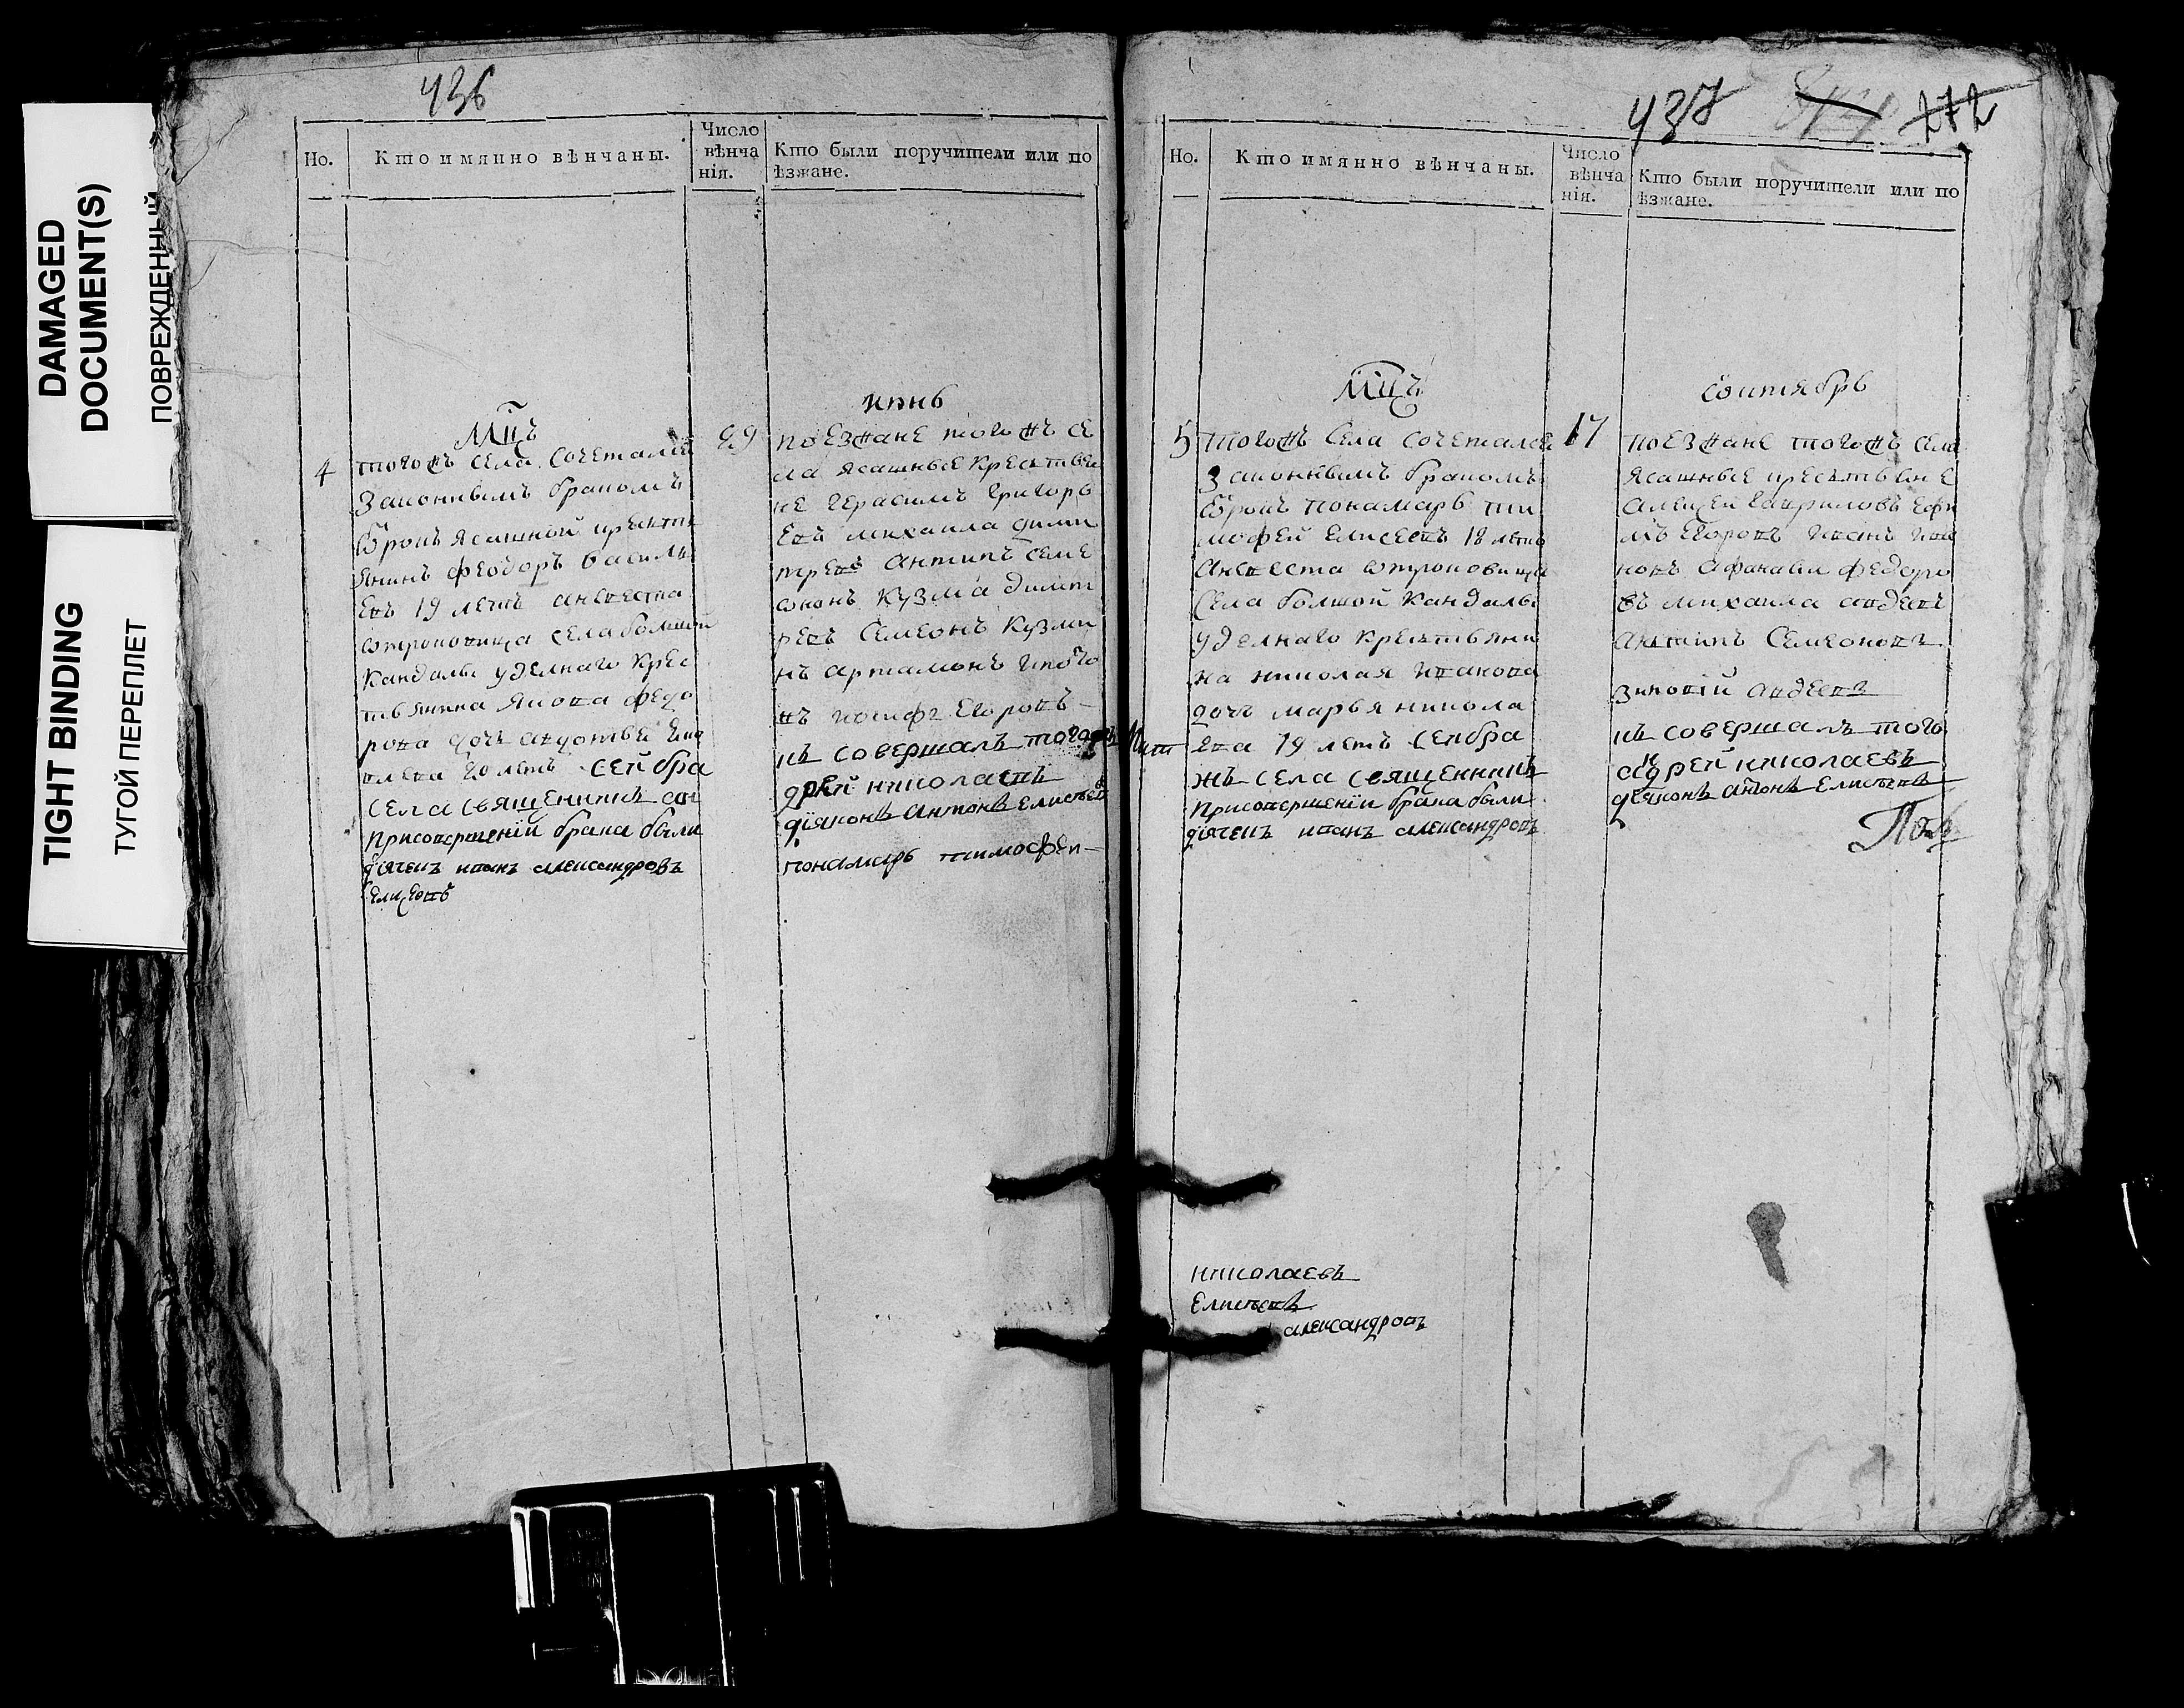 DAMAGED
DOCUMENT(S)
ПОВРЕЖДЕННЫЙ
TIGHT BINDING
ТУГОЙ ПЕРЕПЛЕТ
436
Но.
Кто имянно вѣнчаны.
Число
вѣнча
нія.
Кто были поручители или по
ѣзжане.
Мцъ
июнь
4
29
тогожъ села сочетался
Законнымъ бракомъ
отрокъ ясашной крестья
янинъ Феодоръ василь
евъ 19 летъ аневеста
отроковица села болшой
Кандалы уделнаго Крес
тьянина Якова федо
рова дочь авдотья
20 летъ сей бра
села священникъ ан
Присовершеніи брака были
дьячекъ иванъ александровъ
Елисеевъ
поезжане тогожъ се
ла ясашные Крестьян
не Герасимъ Григорь
евъ михаила дими
треевъ Антипъ семе
оновъ Кузма димит
реевъ Семеонъ Кузми
нъ артамонъ
иосифъ Егоровъ
къ совершалъ тогожъ
дрей николаевъ
діяконъ Антонъ Елисеевъ
пономарь тимофеи
437
272
Но.
Кто имянно вѣнчаны.
Число
вѣнча
нія.
Кто были поручители или по
ѣзжане.
Мцъ
сентябрь
5
17
тогожъ села сочетался
Законнымъ бракомъ
отрокъ понамарь ти
мофей Елисеевъ 18 летъ
аневеста отроковица
Села болшой Кандалы
уделнаго Крестьяни
на николая иванова
дочь марья никола
ева 19 летъ сей бра
жъ села священникъ
Присовершеніи брака были
дьячекъ иванъ александровъ
поезжане тогожъ села
Ясашные крестьяне
алексей Гавриловъ Ефи
мъ Егоровъ иванъ ива
новъ афанасии федоро
въ михаила авдеевъ
антипъ Семеоновъ
зиновій авдеевъ
къ совершалъ того
андрей николаевъ
діяконъ антонъ Елисеевъ
николаевъ
Елисеевъ
александровъ